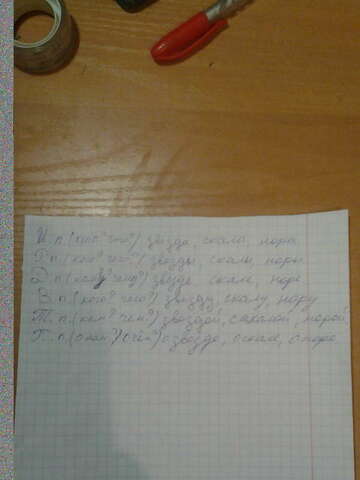 И. п (кто? что?) звезда, скала, нора
Р. п. (кого? чего?) звезды, скалы, норы
Д. п (кому? чему?) звезде, скале, норе
В. п (кого? чего?) звезду, скалу, нору
Т. п. (кем? чем?) звездой, скалой, норой
П. п. (о ком? / о чём?) о звезде, о скале, о норе